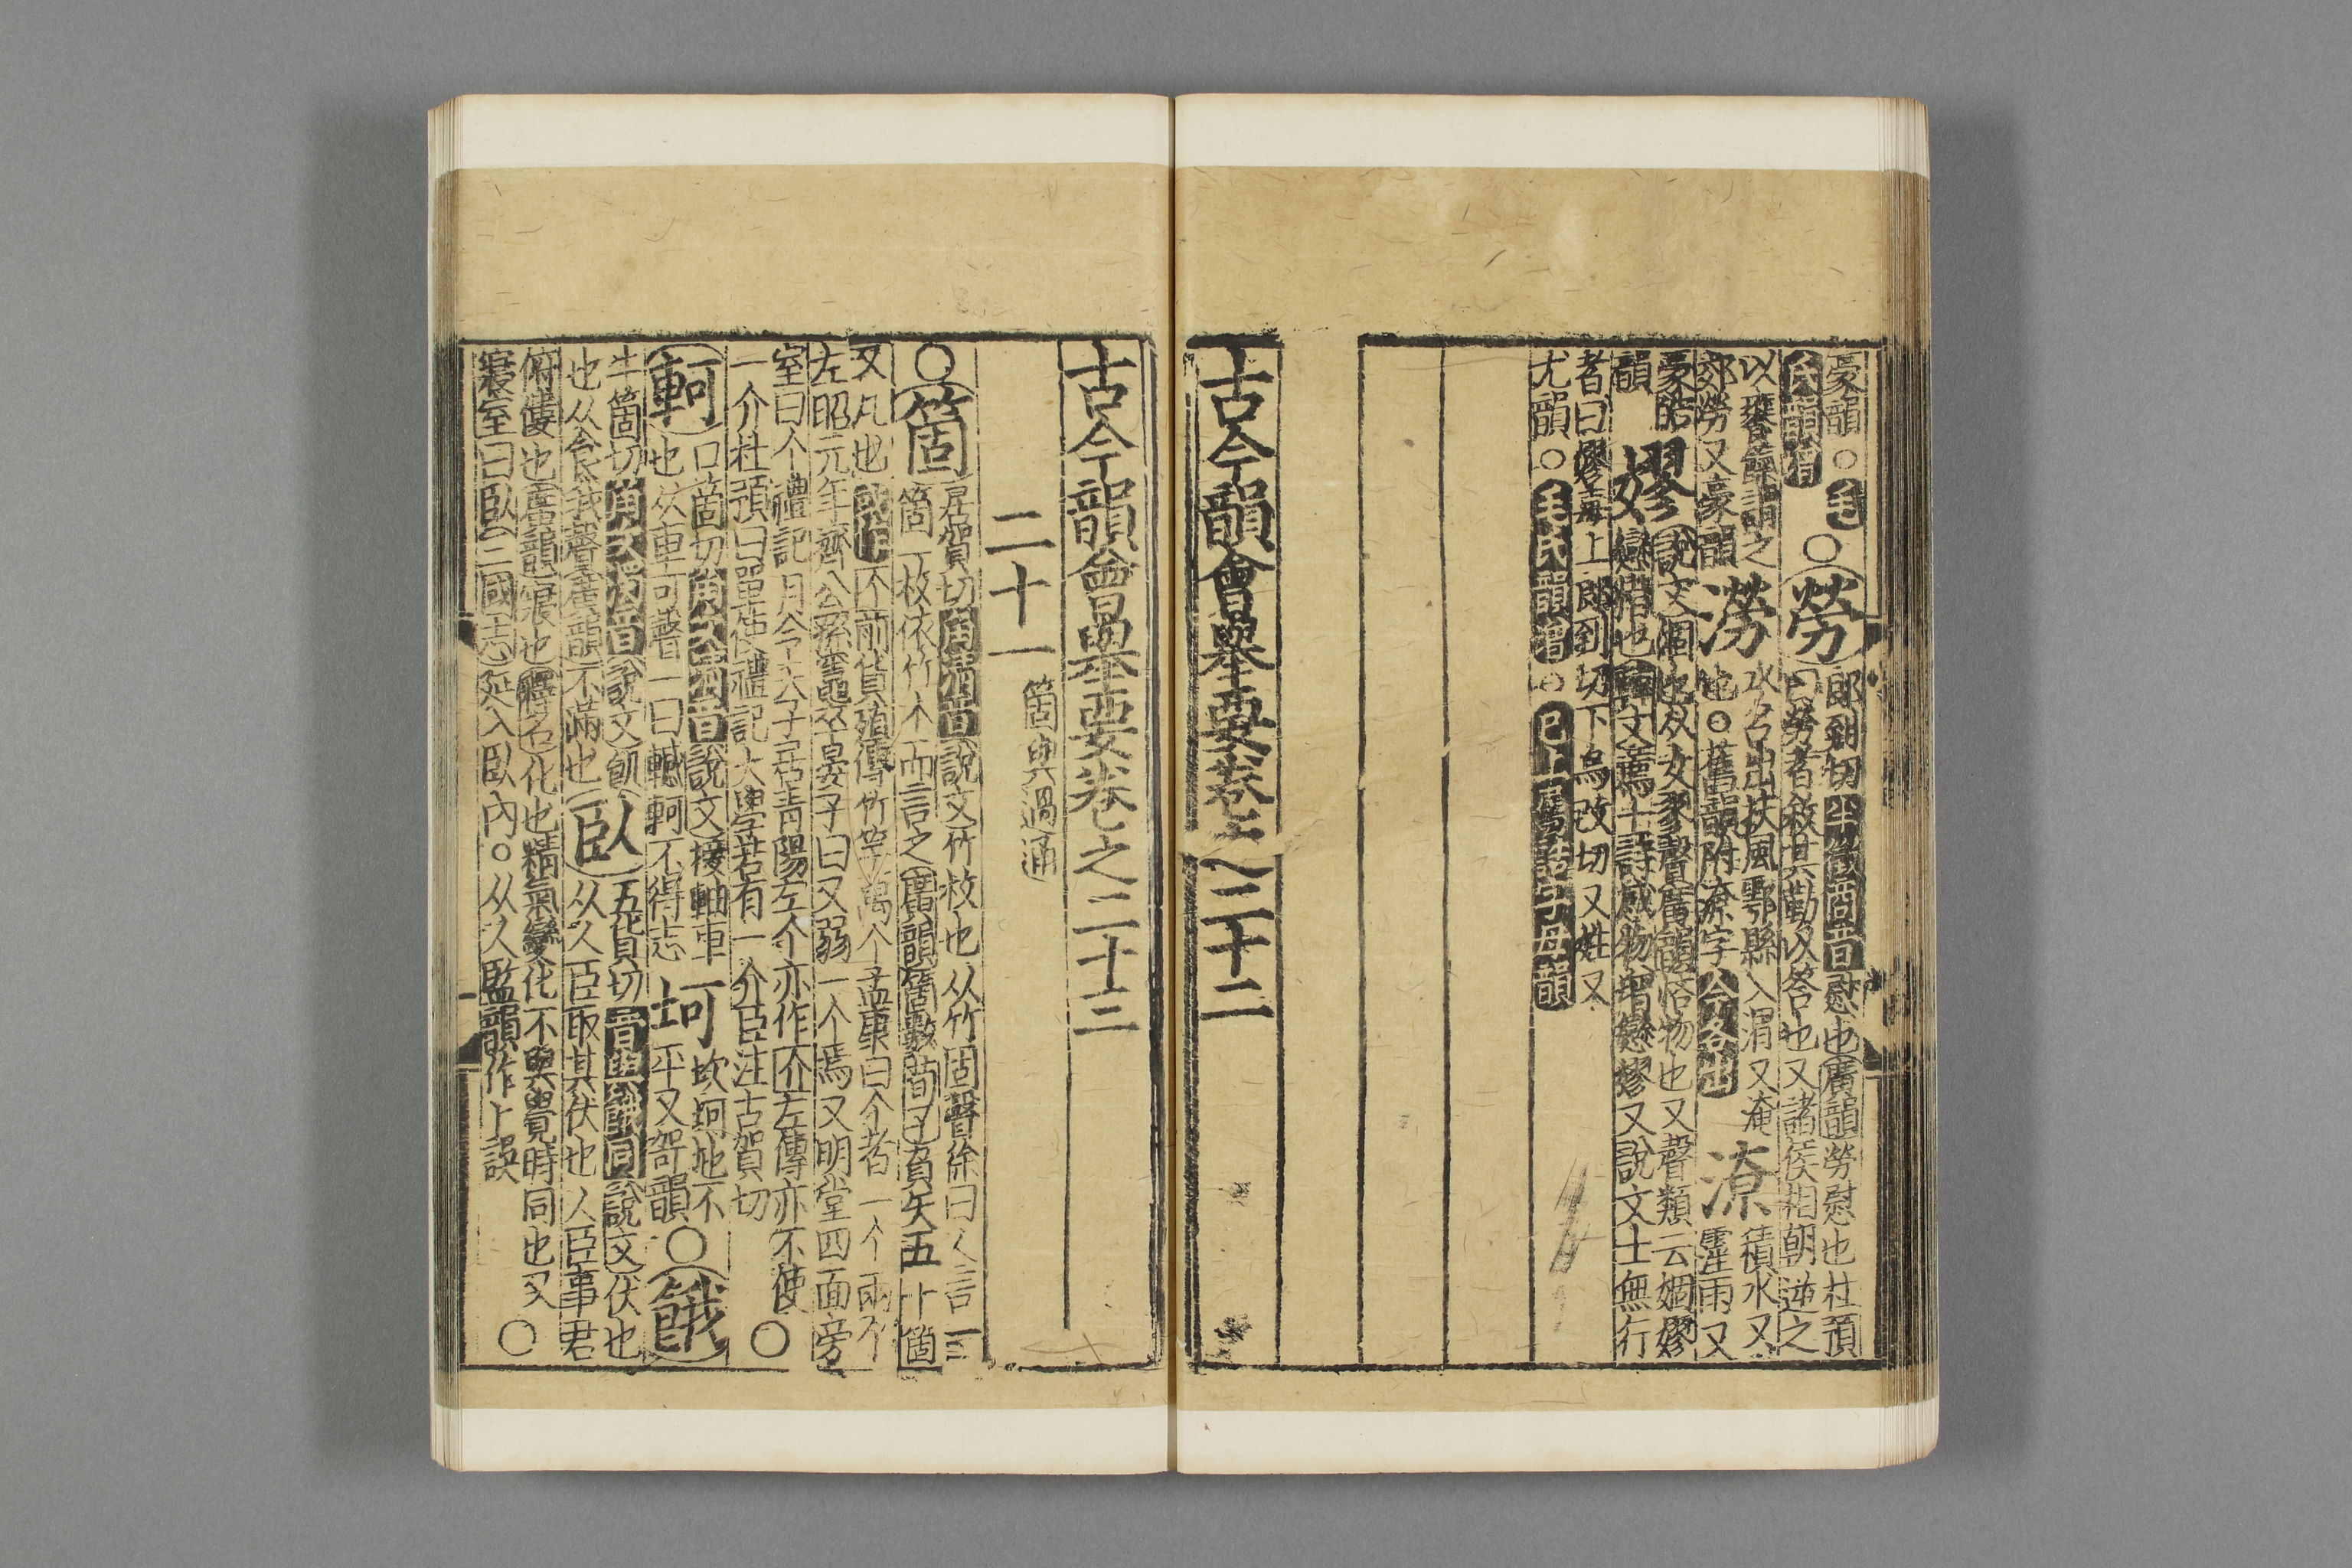 豪韻○毛
氏韻增
○勞
郎到切半徵商音慰也廣韻勞慰也杜預
曰勞者敘其勤以答也又諸侯相朝逆之
以饔餼謂之
郊勞又豪韻
澇
水名出扶風鄠縣入渭又淹
也○舊韻附潦字今各出
潦
積水又
霪雨又
豪皓
韻
嫪
說文婟也从女翏聲廣韻恡物也又聲類云婟嫪
戀惜也韓文薦士詩感物增戀嫪又說文士無行
者曰嫪毐上郎到切下烏改切又姓又
尤韻○毛氏韻增○已上屬誥字母韻
古今韻會舉要卷之二十二
古今韻會舉要卷之二十三
二十一
箇與過通
○箇
居賀切角清音說文竹枚也从竹固聲徐曰人言一
箇一枚依竹个而言之廣韻箇數荀子負矢五十箇
又凡也或作个前貨殖傳竹竿萬个孟康曰个者一个兩个
左昭元年齊公孫竈卒晏子曰又弱一个焉又明堂四面旁
室曰个禮記月令天子居青陽左个亦作介左傳亦不使
一介杜預曰單使禮記大學若有一介臣注古賀切
○
軻
口箇切角次清音說文接軸車
也从車可聲一曰轗軻不得志
坷
坎坷地不
平又哿韻
○餓
牛箇切角次濁音說文飢
也从食我聲廣韻不滿也
臥
五貨切音與餓同說文伏也
从人臣取其伏也人臣事君
俯僂也廣韻寢也釋名化也精氣變化不與覺時同也又
寢室曰臥三國志延入臥內○从人監韻作卜誤
○